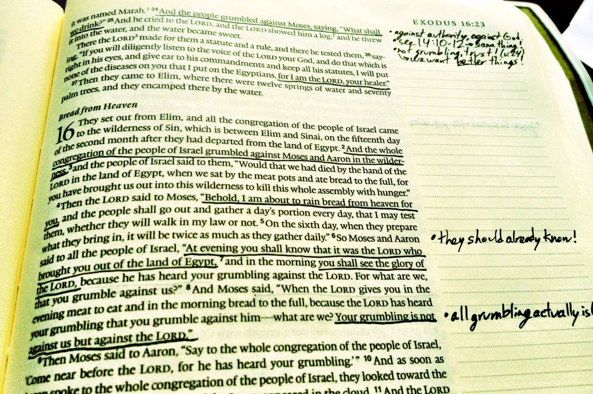 EXODUS 16:23
it was named Marah. 24 And the people grumbled against Moses, saying, "What shall
we drink?" 25 And he cried to the LORD, and the LORD showed him a log, and he threw
it into the water, and the water became sweet.
There the LORD made for them a statute and a rule, and there he tested them, 26 say-
ing, "If you will diligently listen to the voice of the LORD your God, and do that which
is right in his eyes, and give ear to his commandments and keep all his statutes, I will put
none of the diseases on you that I put on the Egyptians, for I am the LORD, your healer."
27 Then they came to Elim, where there were twelve springs of water and seventy
palm trees, and they encamped there by the water.
Bread from Heaven
16 They set out from Elim, and all the congregation of the people of Israel came
to the wilderness of Sin, which is between Elim and Sinai, on the fifteenth day
of the second month after they had departed from the land of Egypt. 2 And the whole
congregation of the people of Israel grumbled against Moses and Aaron in the wilder-
ness, 3 and the people of Israel said to them, "Would that we had died by the hand of the
LORD in the land of Egypt, when we sat by the meat pots and ate bread to the full, for
you have brought us out into this wilderness to kill this whole assembly with hunger."
4 Then the LORD said to Moses, "Behold, I am about to rain bread from heaven for
you, and the people shall go out and gather a day's portion every day, that I may test
them, whether they will walk in my law or not. 5 On the sixth day, when they prepare
what they bring in, it will be twice as much as they gather daily." 6 So Moses and Aaron
said to all the people of Israel, "At evening you shall know that it was the LORD who
brought you out of the land of Egypt, 7 and in the morning you shall see the glory of
the LORD, because he has heard your grumbling against the LORD. For what are we,
that you grumble against us?" 8 And Moses said, "When the LORD gives you in the
evening meat to eat and in the morning bread to the full, because the LORD has heard
your grumbling that you grumble against him—what are we? Your grumbling is not
against us but against the LORD."
9 Then Moses said to Aaron, "Say to the whole congregation of the people of Israel,
'Come near before the LORD, for he has heard your grumbling.'" 10 And as soon as
spoke to the whole congregation of the people of Israel, they looked toward the
appeared in the cloud. 11 And the LORD
• against authority, against God,
see 14:10-12 → same thing!
• not grumbling, trust!
↳ we want better things!
• they should already know!
• all grumbling actually is